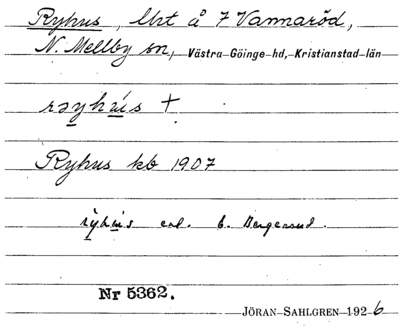 Ryhus, lht å 7 Vannaröd,
N. Mellby sn, Västra Göinge hd, Kristianstad län
røyhu̇s †
Ryhus kb 1907
enl. E. Bergersud.
Nr 5362.
JÖRAN SAHLGREN 1926